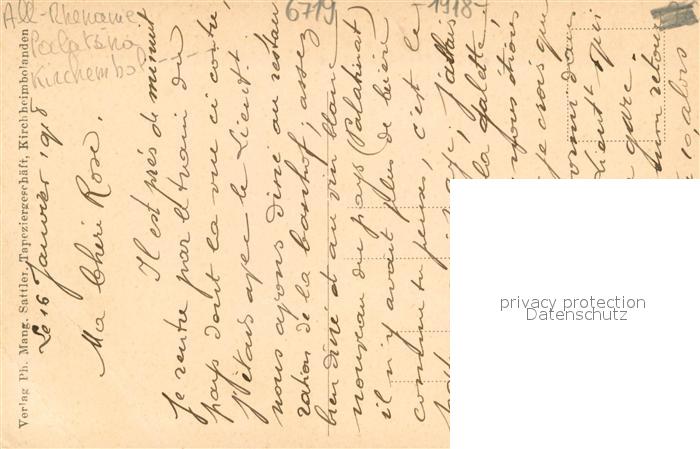 All-Rhenanie
Kirchembol
6719
-1918-
Verlag Ph. Mang. Sattler, Tapeziergeschäft, Kirchheimbolanden
Le 16 Janvier 1918
Ma Chéri Rose,
Il est près de minuit
je rentre par le train du
pays dont la vue ci contre,
J'étais avec le Lieut.
nous avons dîné au restau
ration de la banhof, assez
bien dîné et au vin blanc
nouveau du pays (Palatinat)
il n'y avait plus de bière
comme tu penses, c'est le
j'allais
la galette
nous étions
je crois que
dans
Lieut qui
gare
retour
alors
privacy protection
Datenschutz